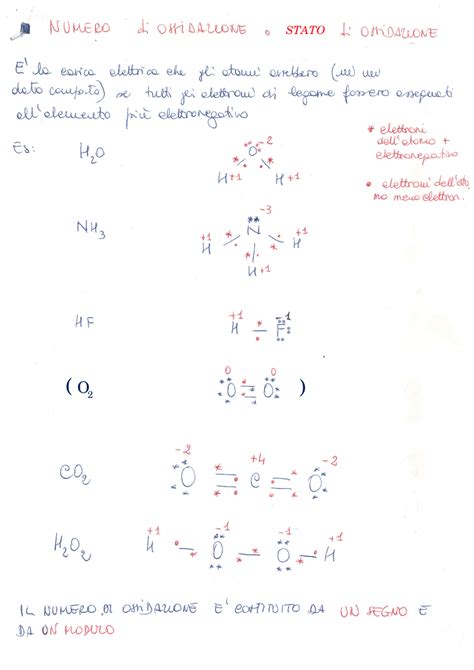 NUMERO di OSSIDAZIONE o STATO di OSSIDAZIONE
E' la carica elettrica che gli atomi avrebbero (in un
dato composto) se tutti gli elettroni di legame fossero assegnati
all'elemento più elettronegativo
* elettroni
dell'atomo +
elettronegativo
• elettroni dell'ato
no meno elettron.
Es: H2O
-2
O
H+1 H+1
NH3
-3
+1 N +1
H H
H+1
HF
+1 -1
H F
( O2 )
0 0
O O
CO2
-2 +4 -2
O C O
H2O2
+1 -1 -1 +1
H O O H
IL NUMERO DI OSSIDAZIONE E' COSTITUITO DA UN SEGNO E
DA UN MODULO